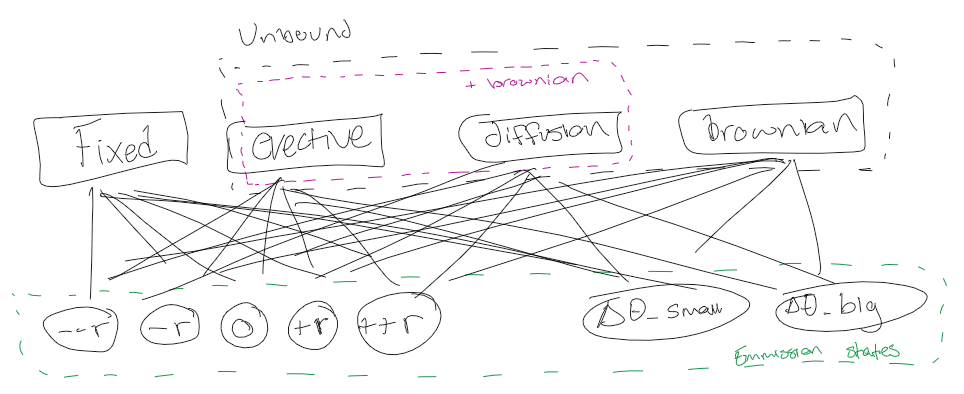 Unbound
+ brownian
Fixed
evective
diffusion
brownian
--r
-r
0
+r
++r
Δθ_small
Δθ_big
Emmission states